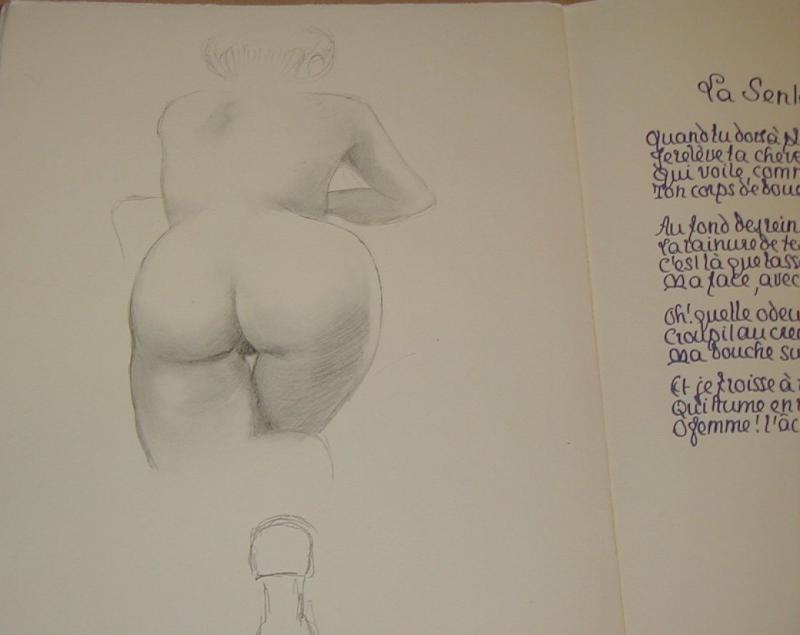 La Sent
Quand tu dors à p
Je relève ta cheve
Qui voile, comm
Ton corps de douc
Au fond des rein
La rainure de te
C'est là que lass
Ma face, avec
Oh! quelle odeu
Croupil au creu
Ma bouche su
Et je froisse à
Qui hume en
O femme! l'âc